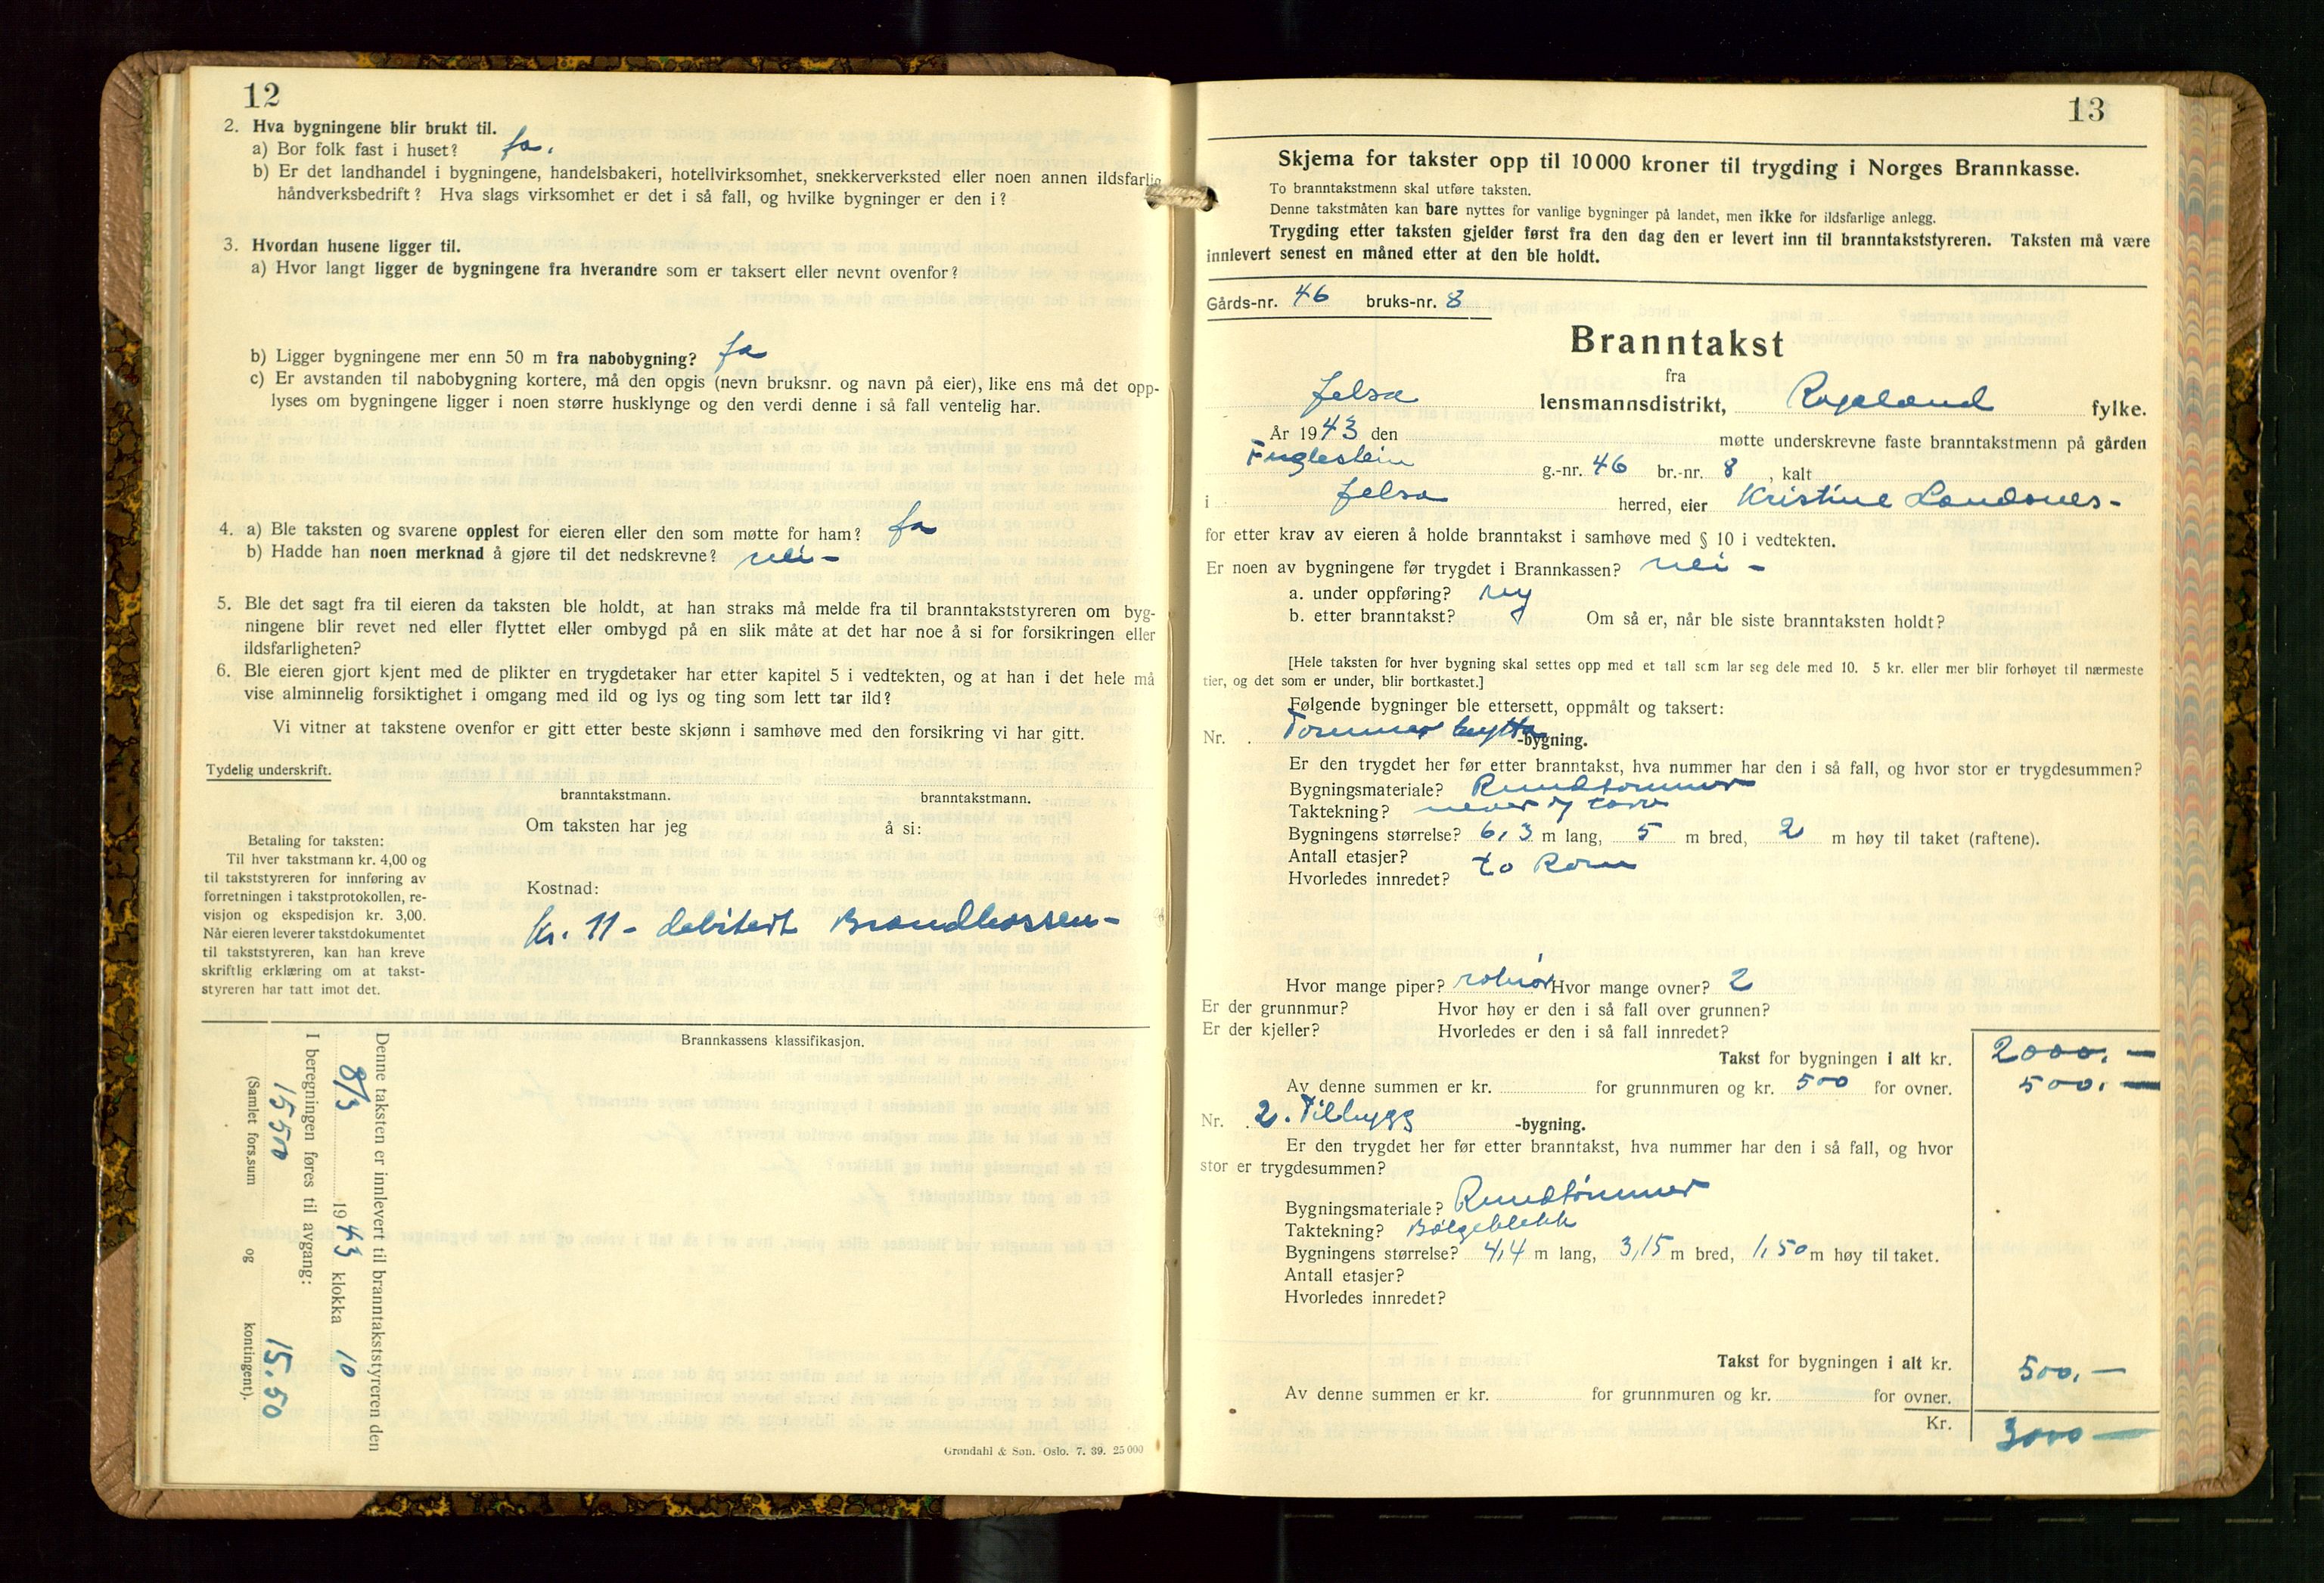 12
2. Hva bygningene blir brukt til.
a) Bor folk fast i huset? Ja.
b) Er det landhandel i bygningene, handelsbakeri, hotellvirksomhet, snekkerverksted eller noen annen ildsfarlig
håndverksbedrift? Hva slags virksomhet er det i så fall, og hvilke bygninger er den i?
3. Hvordan husene ligger til.
a) Hvor langt ligger de bygningene fra hverandre som er taksert eller nevnt ovenfor?
b) Ligger bygningene mer enn 50 m fra nabobygning? Ja
c) Er avstanden til nabobygning kortere, må den opgis (nevn bruksnr. og navn på eier), like ens må det opp-
lyses om bygningene ligger i noen større husklynge og den verdi denne i så fall ventelig har.
4. a) Ble taksten og svarene opplest for eieren eller den som møtte for ham? Ja
b) Hadde han noen merknad å gjøre til det nedskrevne? nei -
5. Ble det sagt fra til eieren da taksten ble holdt, at han straks må melde fra til branntakststyreren om byg-
ningene blir revet ned eller flyttet eller ombygd på en slik måte at det har noe å si for forsikringen eller
ildsfarligheten?
6. Ble eieren gjort kjent med de plikter en trygdetaker har etter kapitel 5 i vedtekten, og at han i det hele må
vise alminnelig forsiktighet i omgang med ild og lys og ting som lett tar ild?
Vi vitner at takstene ovenfor er gitt etter beste skjønn i samhøve med den forsikring vi har gitt.
Tydelig underskrift.
branntakstmann. branntakstmann.
Om taksten har jeg å si:
Betaling for taksten:
Til hver takstmann kr. 4,00 og
til takststyreren for innføring av
forretningen i takstprotokollen, re-
visjon og ekspedisjon kr. 3,00.
Når eieren leverer takstdokumentet
til takststyreren, kan han kreve
skriftlig erklæring om at takst-
styreren har tatt imot det.
Kostnad:
Kr. 11 - debitert Brandkassen -
Brannkassens klassifikasjon.
Denne taksten er innlevert til branntakststyreren den
8/3 1943 klokka 10
I beregningen føres til avgang:
1550 15.50
(Samlet fors.sum og kontingent).
Grøndahl & Søn. Oslo. 7. 39. 25 000
13
Skjema for takster opp til 10 000 kroner til trygding i Norges Brannkasse.
To branntakstmenn skal utføre taksten.
Denne takstmåten kan bare nyttes for vanlige bygninger på landet, men ikke for ildsfarlige anlegg.
Trygding etter taksten gjelder først fra den dag den er levert inn til branntakststyreren. Taksten må være
innlevert senest en måned etter at den ble holdt.
Gårds-nr. 46 bruks-nr. 8
Branntakst
fra
Jelsa lensmannsdistrikt, Rogaland fylke.
År 1943 den møtte underskrevne faste branntakstmenn på gården
Fuglestein g.-nr. 46 br.-nr. 8, kalt
i Jelsa herred, eier Kristine Landsnes -
for etter krav av eieren å holde branntakst i samhøve med § 10 i vedtekten.
Er noen av bygningene før trygdet i Brannkassen? nei -
a. under oppføring? ny
b. etter branntakst? Om så er, når ble siste branntaksten holdt?
[Hele taksten for hver bygning skal settes opp med et tall som lar seg dele med 10. 5 kr. eller mer blir forhøyet til nærmeste
tier, og det som er under, blir bortkastet.]
Følgende bygninger ble ettersett, oppmålt og taksert:
Nr. Tømmerhytta -bygning.
Er den trygdet her før etter branntakst, hva nummer har den i så fall, og hvor stor er trygdesummen?
Bygningsmateriale? Rundtømmer
Taktekning? never og torv
Bygningens størrelse? 6,3 m lang, 5 m bred, 2 m høy til taket (raftene).
Antall etasjer?
Hvorledes innredet? to Rom
Hvor mange piper? Hvor mange ovner? 2
Er der grunnmur? Hvor høy er den i så fall over grunnen?
Er der kjeller? Hvorledes er den i så fall innredet?
Takst for bygningen i alt kr. 2000. -
Av denne summen er kr. for grunnmuren og kr. 500 for ovner. 500. -
Nr. 2. Tilbygg -bygning.
Er den trygdet her før etter branntakst, hva nummer har den i så fall, og hvor
stor er trygdesummen?
Bygningsmateriale? Rundtømmer
Taktekning? Bølgeblekk
Bygningens størrelse? 4,4 m lang, 3,15 m bred, 1,50 m høy til taket.
Antall etasjer?
Hvorledes innredet?
Takst for bygningen i alt kr. 500. -
Av denne summen er kr. for grunnmuren og kr. for ovner.
Kr. 3000 -